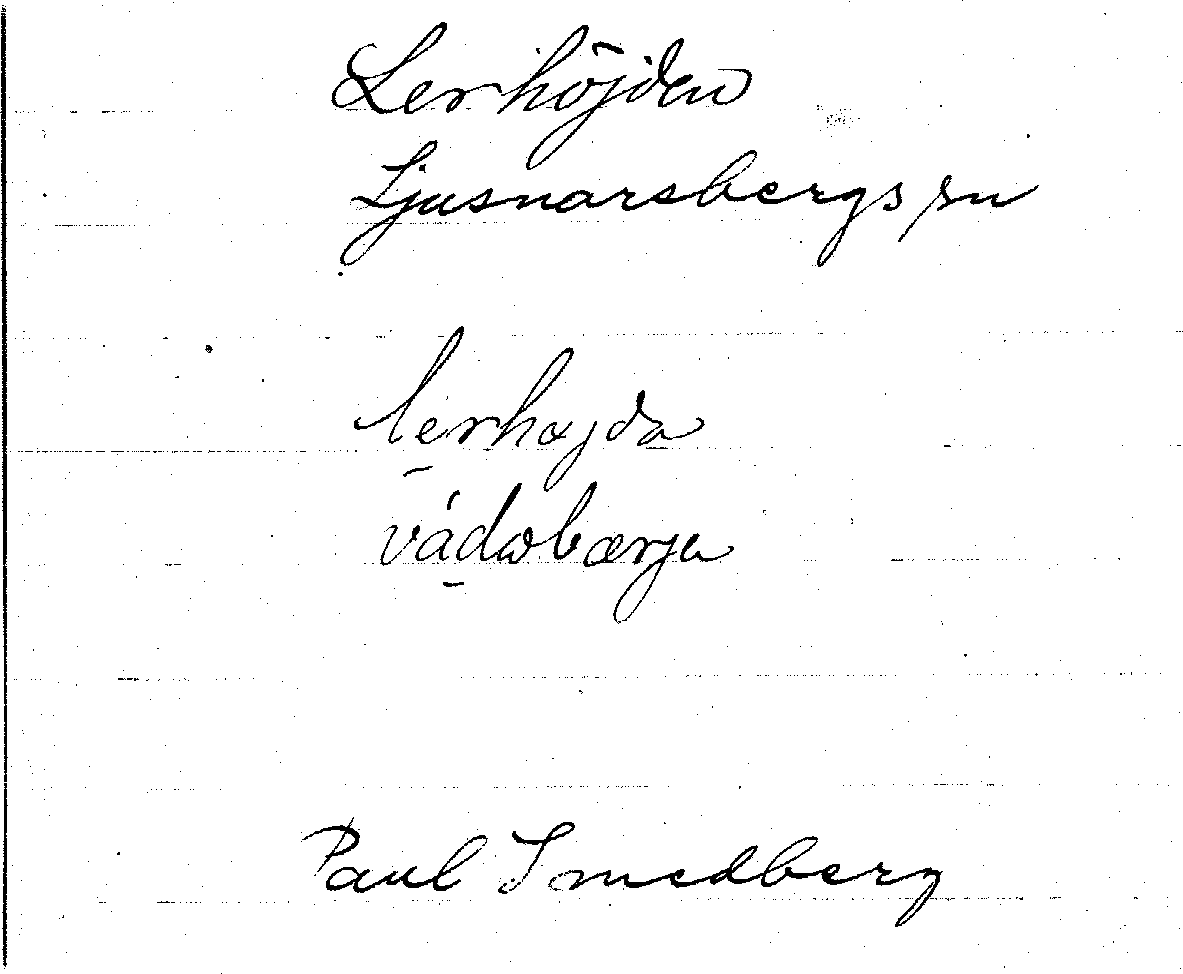 Lerhöjden
Ljusnarsbergs sn
lerhøjda
Paul Smedberg